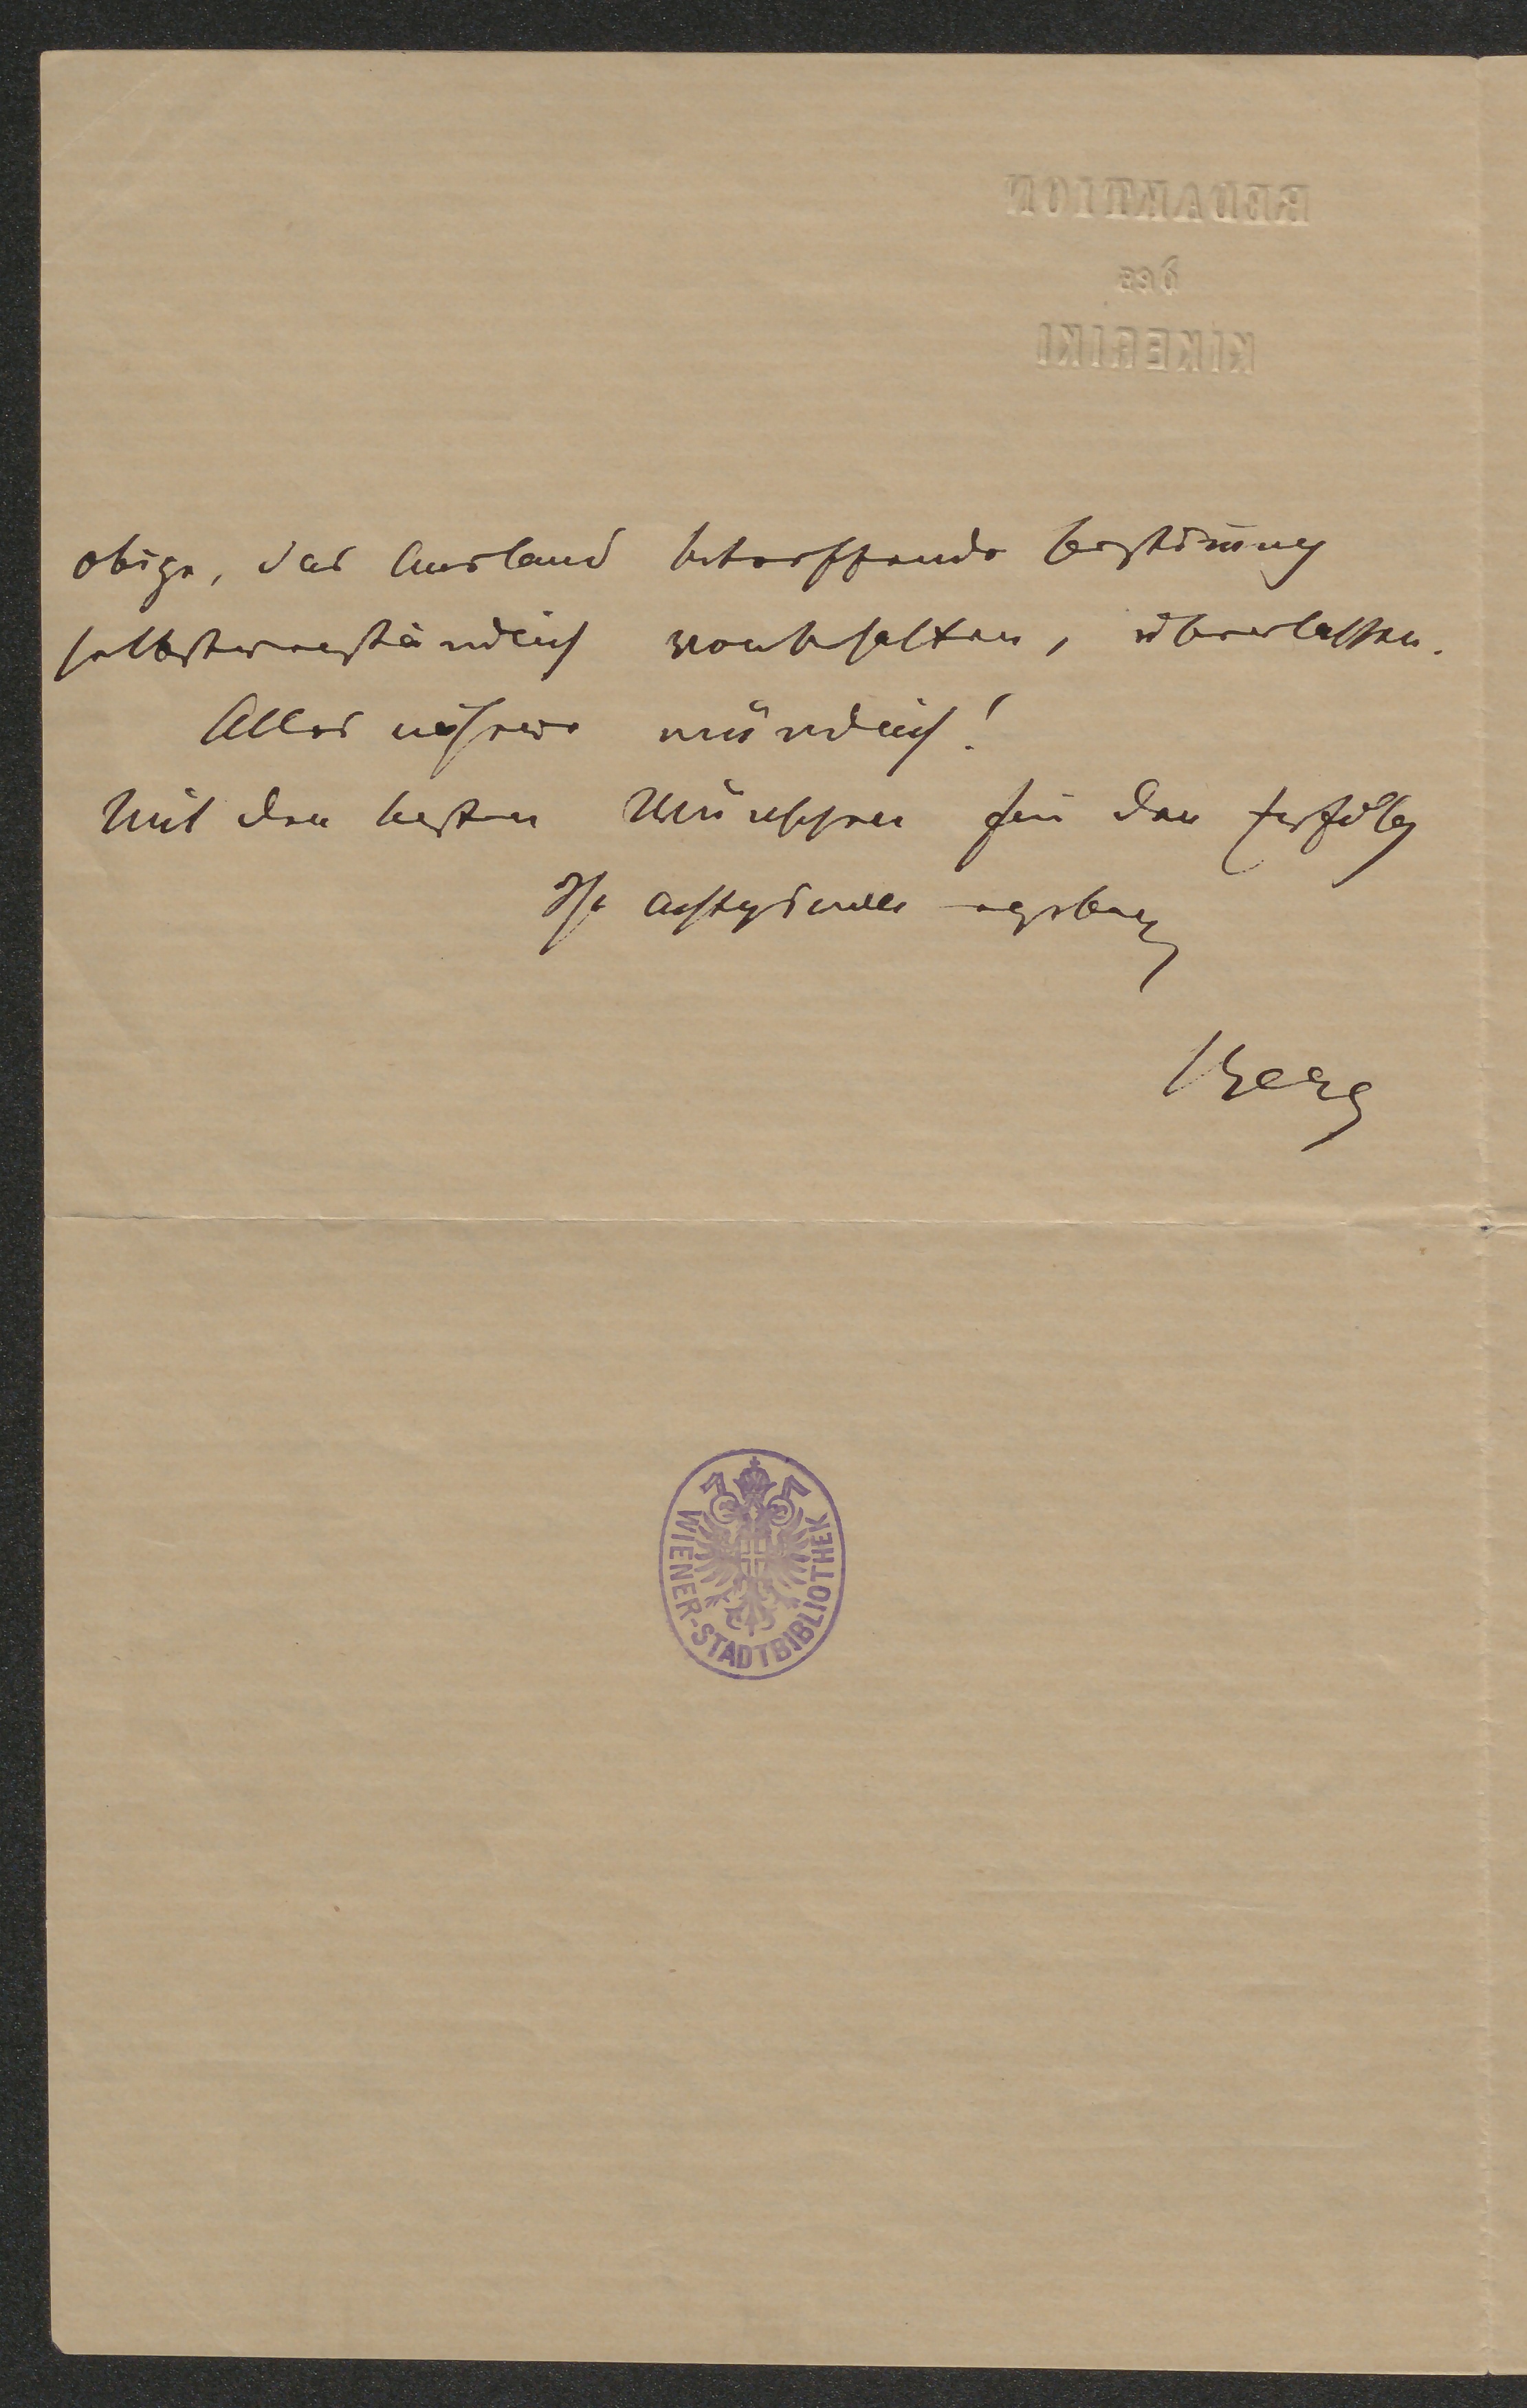 REDAKTION
des
KIKERIKI
obige, das Ausland betreffende Bestimmung
selbstverständlich vorbehalten, überlassen.
Alles nähere mündlich!
Mit den besten Wünschen für den Erfolg
Ihr achtungsvoll ergebener
Berg
WIENER-STADTBIBLIOTHEK